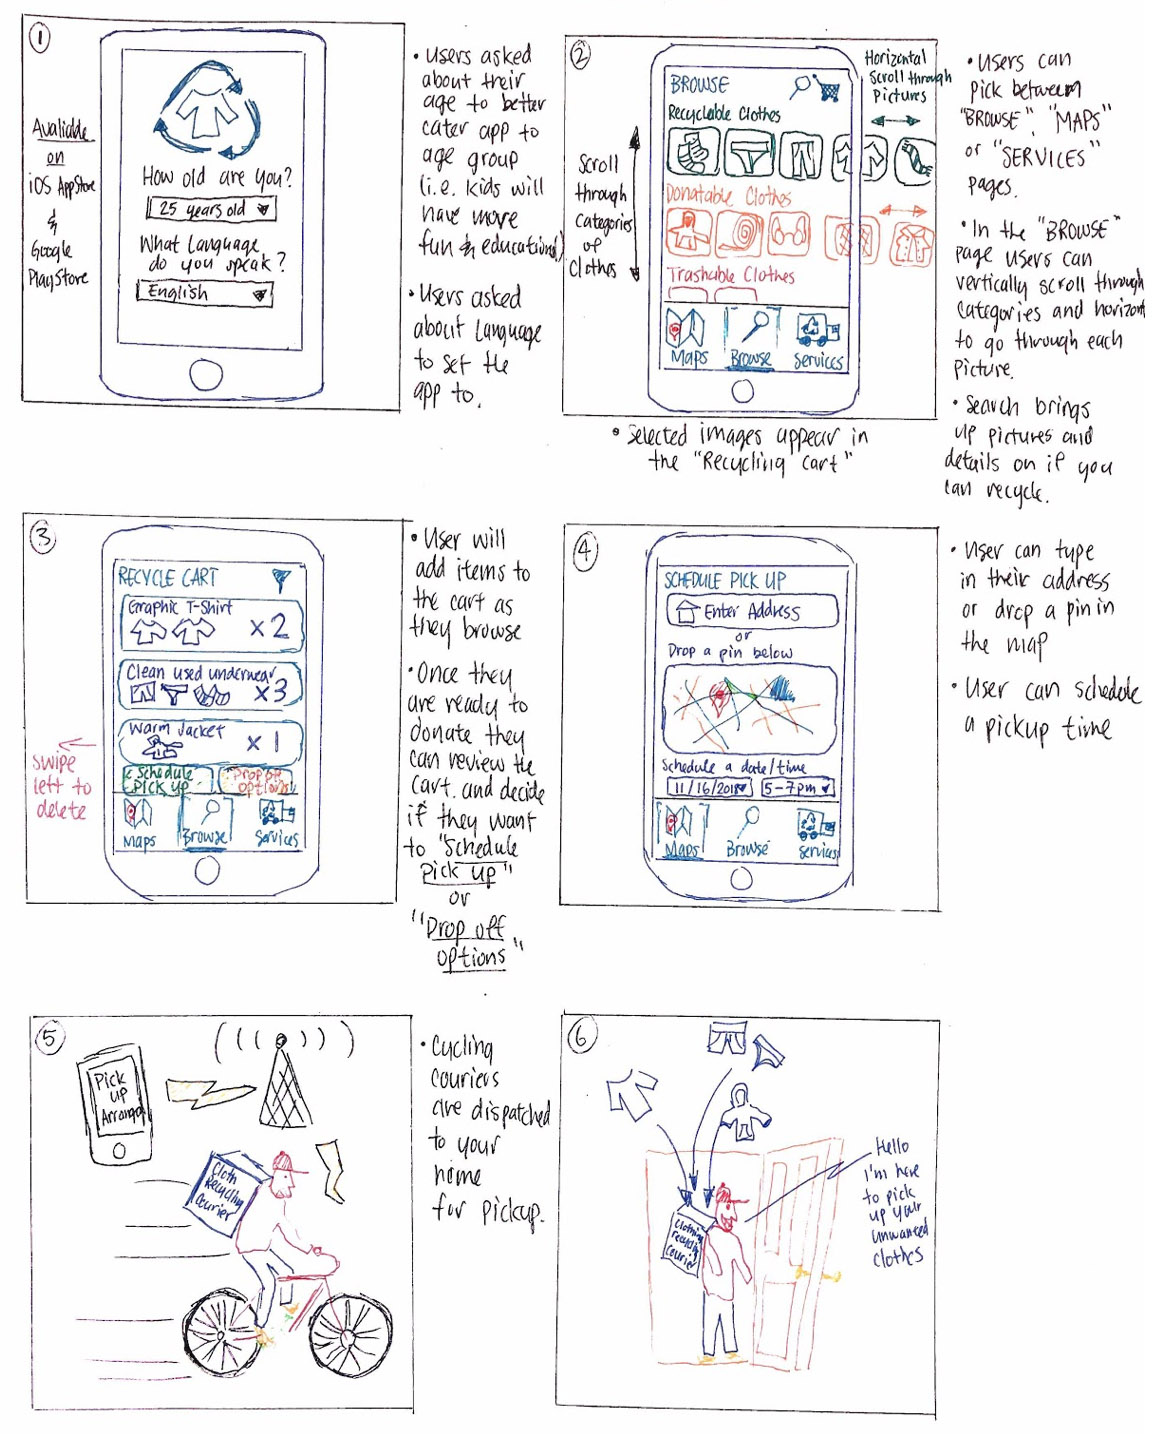 1
Avaliable
on
iOS AppStore
&
Google
PlayStore
How old are you?
25 years old
What Language
do you speak?
English
• Users asked
about their
age to better
cater app to
age group
(i.e. kids will
have more
fun & educational)
• Users asked
about Language
to set the
app to.
2
Scroll
through
categories
of
Clothes
BROWSE
Recyclable Clothes
Donatable Clothes
Trashable Clothes
Maps
Browse
Services
Horizontal
Scroll through
Pictures
• Selected images appear in
the "Recycling cart"
• Users can
pick between
"BROWSE", "MAPS"
or "SERVICES"
pages.
• In the "BROWSE"
page users can
vertically scroll through
Categories and horizont
to go through each
Picture.
• Search brings
up pictures and
details on if you
can recycle.
3
Swipe
left to
delete
RECYCLE CART
Graphic T-Shirt
x2
Clean used underwear
x3
Warm Jacket
x1
Schedule
pick up
Drop off
options
Maps
Browse
Services
• User will
add items to
the cart as
they browse
• Once they
are ready to
donate they
can review the
Cart. and decide
if they want
to "Schedule
Pick up"
or
"Drop off
options"
4
SCHEDULE PICK UP
Enter Address
or
Drop a pin below
Schedule a date/time
11/16/2018
5-7pm
Maps
Browse
Services
• User can type
in their address
or drop a pin in
the map
• User can schedule
a pickup time
5
Pick
up
Cloth
Recycling
Courier
• Cycling
couriers
are dispatched
to your
home
for pickup.
6
Clothing
recycling
Courier
Hello
I'm here
to pick
up your
unwanted
clothes